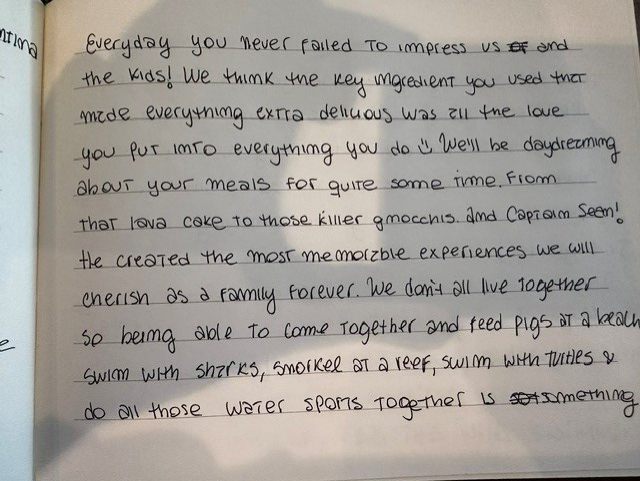 ntima
Everyday you never failed to impress us and
the kids! We think the key ingredient you used that
made everything extra delicious was all the love
you put into everything you do :) We'll be daydreaming
about your meals for quite some time. From
that lava cake to those killer gnocchis. and Captain Sean!
He created the most memorable experiences we will
cherish as a family forever. We don't all live together
so being able to come together and feed pigs at a beach
swim with sharks, snorkel at a reef, swim with turtles &
do all those water sports together is something